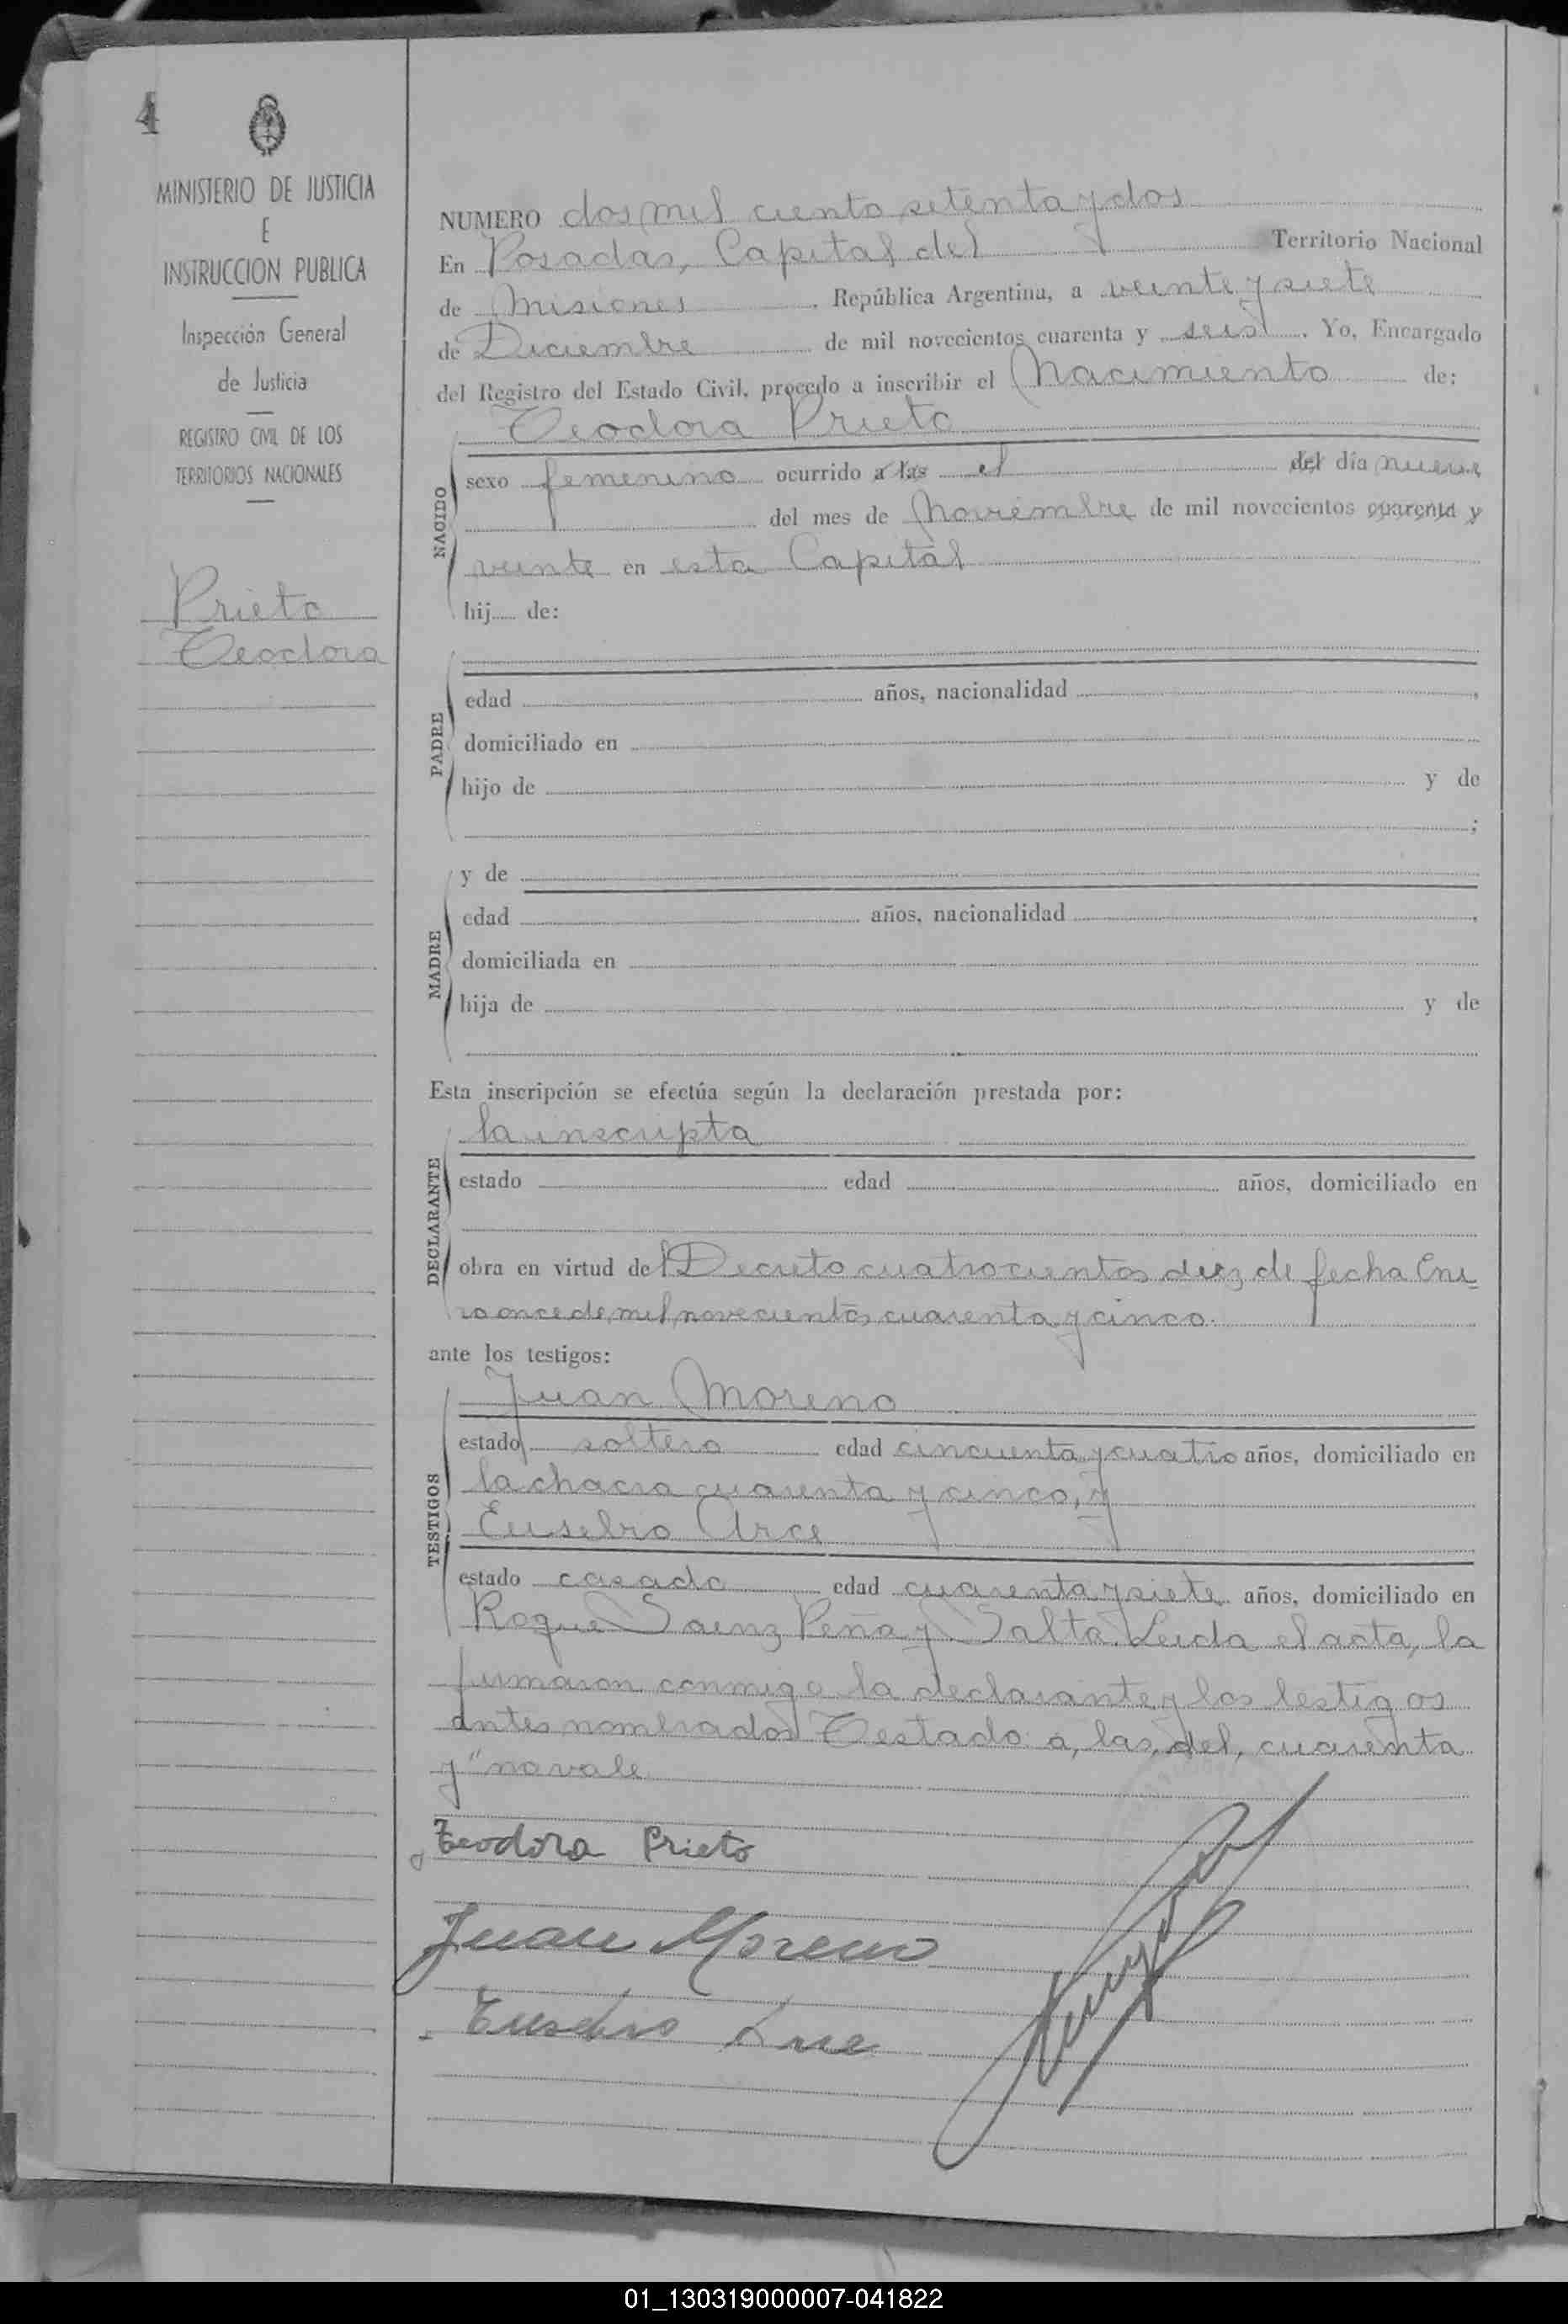 4
MINISTERIO DE JUSTICIA
E
INSTRUCCION PUBLICA
Inspección General
de Justicia
REGISTRO CIVIL DE LOS
TERRITORIOS NACIONALES
Prieto
Teodora
NUMERO dos mil ciento setenta y dos
En Posadas, Capital del Territorio Nacional
de Misiones, República Argentina, a veinte y siete
de Diciembre de mil novecientos cuarenta y seis. Yo, Encargado
del Registro del Estado Civil, procedo a inscribir el Nacimiento de:
Teodora Prieto
NACIDO
sexo femenino ocurrido a las el del día nueve
del mes de Noviembre de mil novecientos cuarenta y
veinte en esta Capital
hij de:
PADRE
edad años, nacionalidad ,
domiciliado en
hijo de y de
;
MADRE
y de
edad años, nacionalidad ,
domiciliada en
hija de y de
Esta inscripción se efectúa según la declaración prestada por:
DECLARANTE
la inscripta
estado edad años, domiciliado en
obra en virtud del Decreto cuatrocientos diez de fecha Ene-
ro once de mil novecientos cuarenta y cinco.
ante los testigos:
TESTIGOS
Juan Moreno
estado soltero edad cincuenta y cuatro años, domiciliado en
la chacra cuarenta y cinco, y
Eusebio Arce
estado casado edad cuarenta y siete años, domiciliado en
Roque Saenz Peña y Salta. Leida el acta, la
firmaron conmigo la declarante y los testigos
antes nombrados Testado: a, las, del, cuarenta
y" no vale
Teodora Prieto
Juan Moreno
Eusebio Arce
01_130319000007-041822